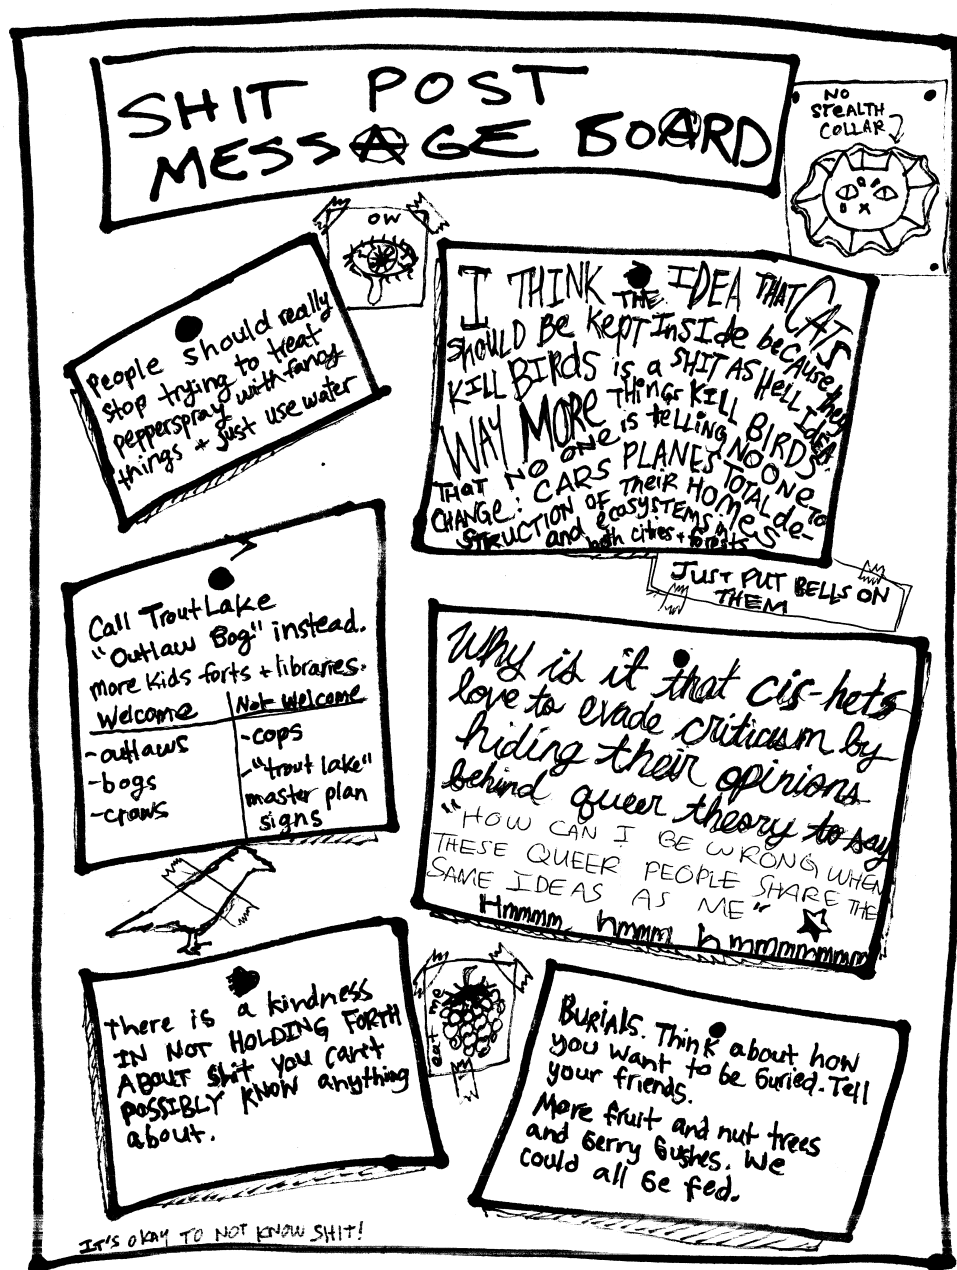 SHIT POST
MESSAGE BOARD
NO
STEALTH
COLLAR
OW
People should really
stop trying to treat
pepperspray with fancy
things + just use water
I THINK THE IDEA THAT CATS
SHOULD BE KEPT INSIDE because they
KILL BIRDS is a SHIT AS HELL IDEA.
WAY MORE THINGS KILL BIRDS
THAT NO ONE is telling NO ONE TO
CHANGE: CARS PLANES TOTAL de-
STRUCTION OF THEIR HOMES
and ecosystems in
both cities + forests
JUST PUT BELLS ON
THEM
Call Trout Lake
"Outlaw Bog" instead.
more kids forts + libraries.
Welcome Not Welcome
-outlaws -cops
-bogs -"trout lake"
-craws master plan
signs
Why is it that cis-hets
love to evade criticism by
hiding their opinions
behind queer theory to say
"HOW CAN I BE WRONG, WHEN
THESE QUEER PEOPLE SHARE THE
SAME IDEAS AS ME"
Hmmmm hmmm hmmmmmmmm
There is a kindness
IN NOT HOLDING FORTH
ABOUT shit you can't
POSSIBLY KNOW anything
about.
eat me
BURIALS. Think about how
you want to be buried. Tell
your friends.
More fruit and nut trees
and berry bushes. We
could all be fed.
IT'S OKAY TO NOT KNOW SHIT!